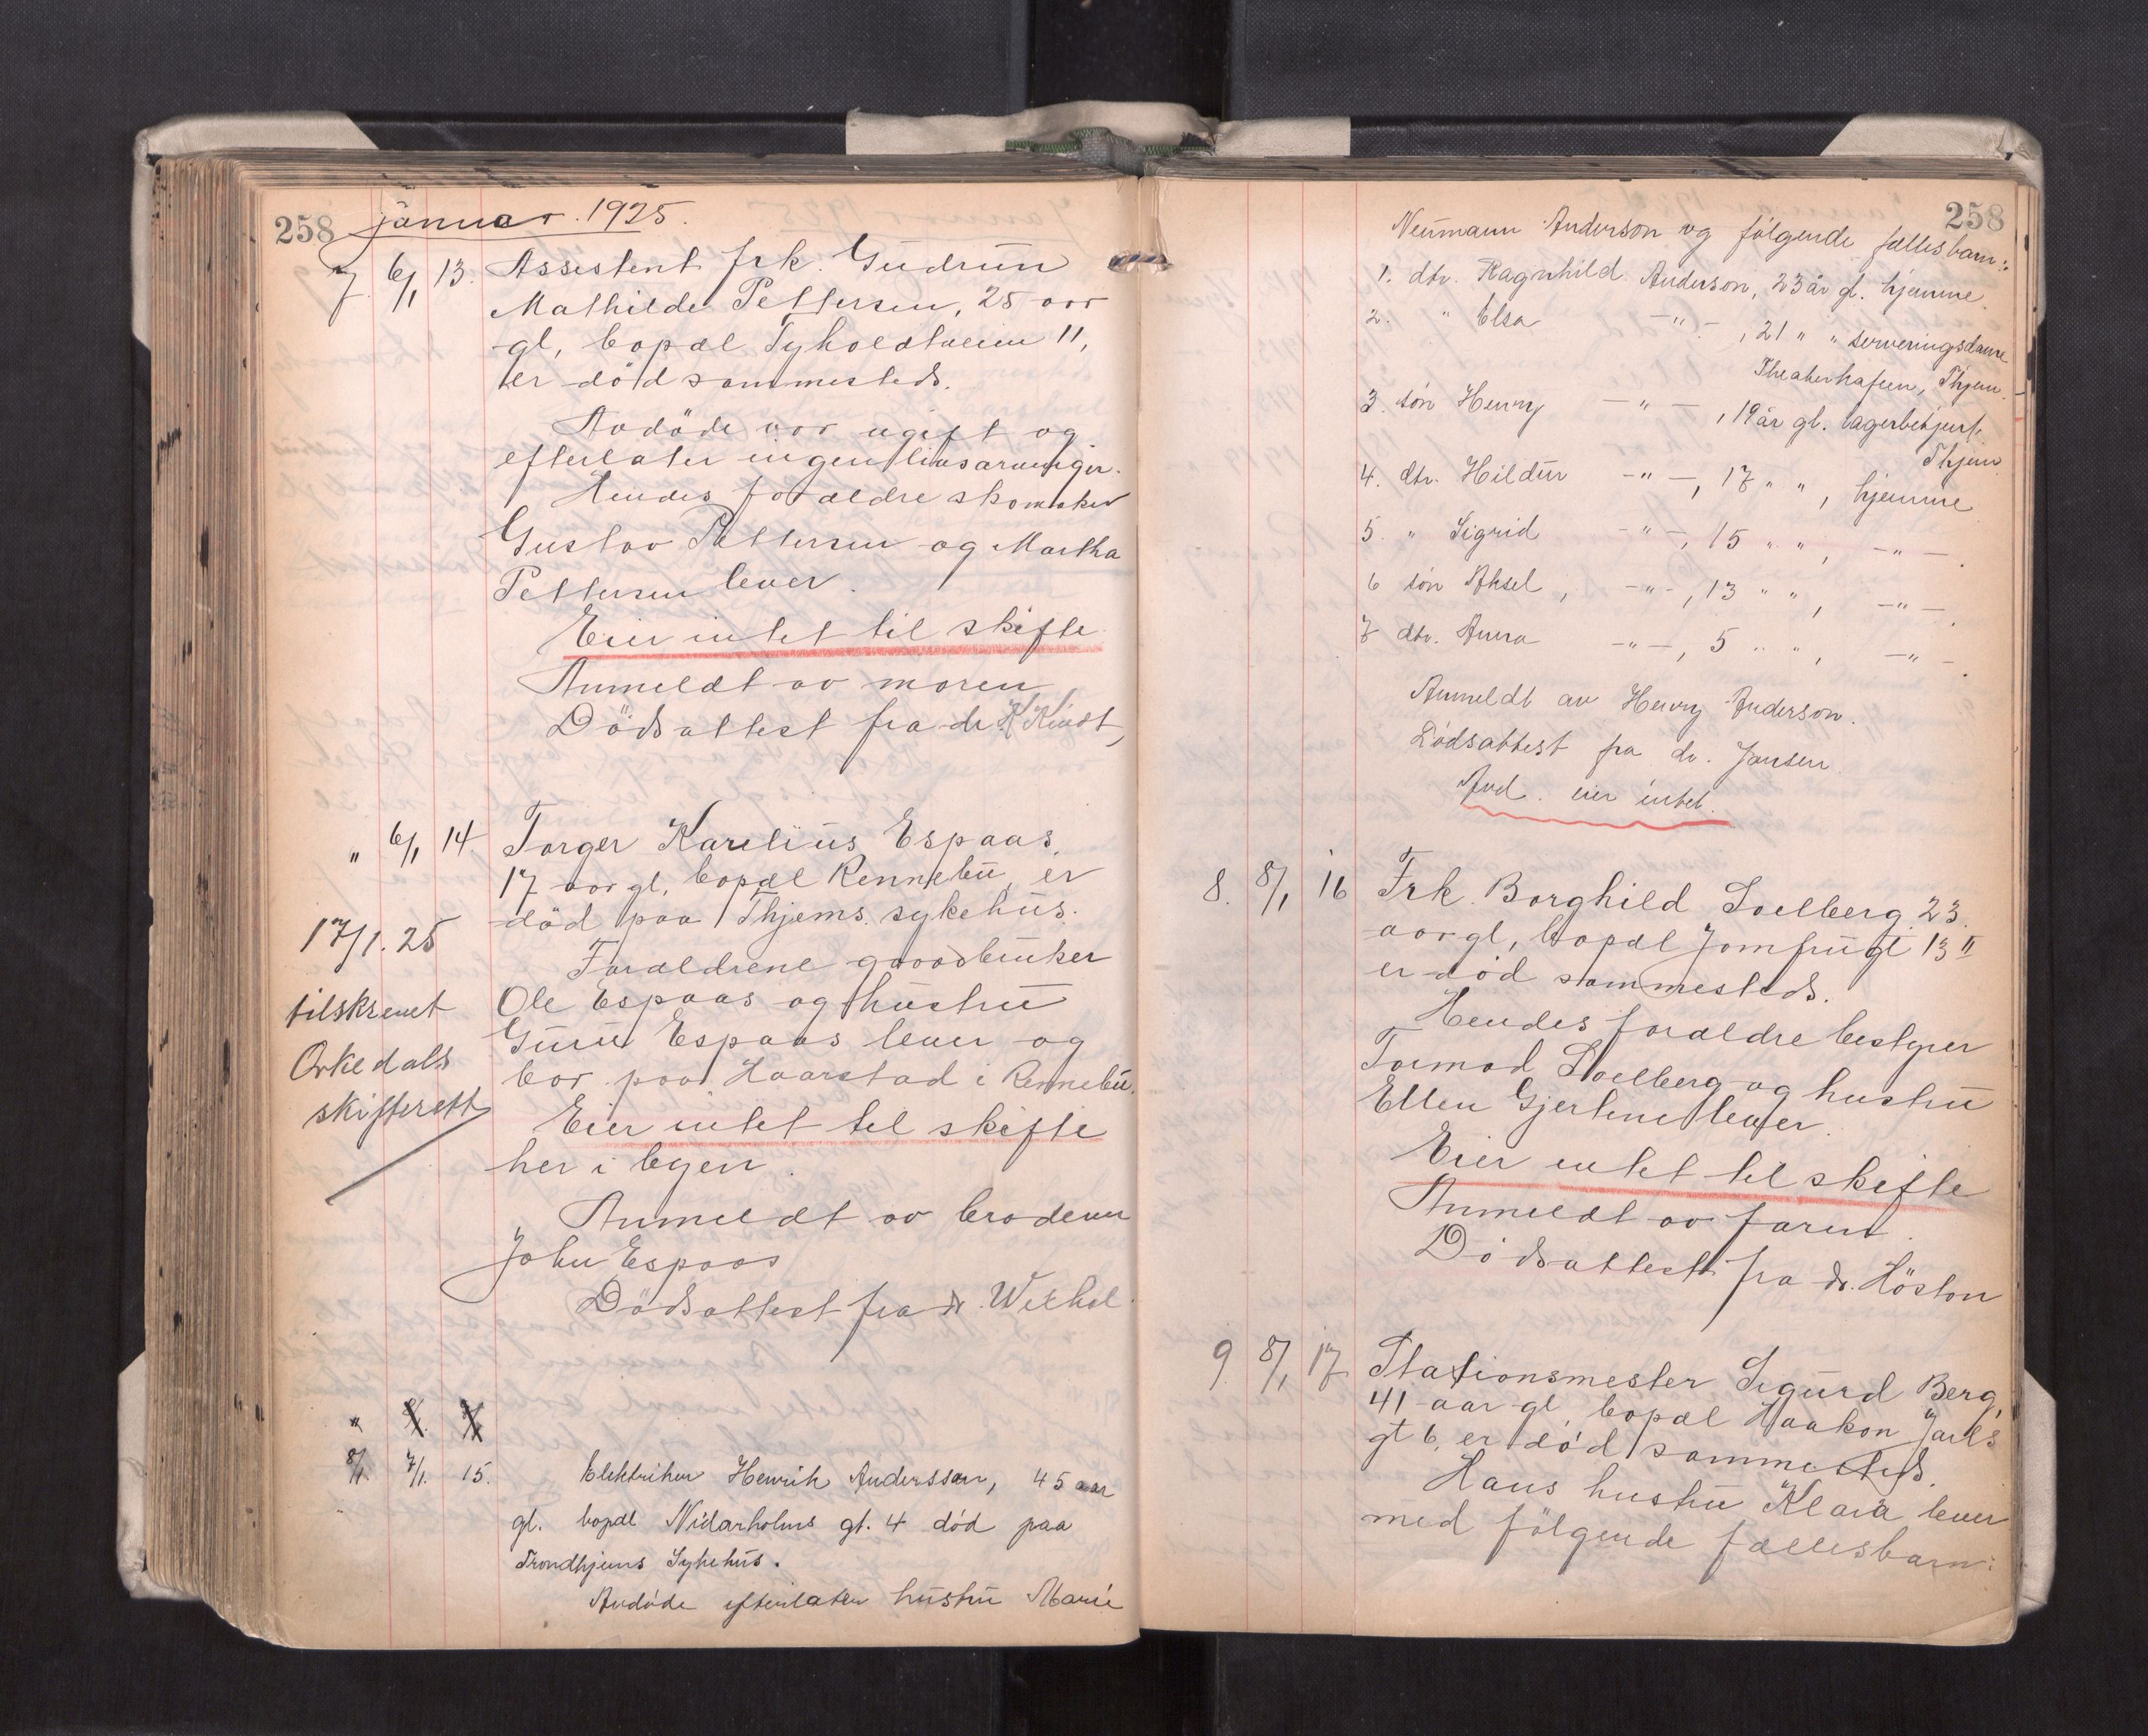 258 januar. 1925.
7. 6/1 13. Assistent frk. Gudrun
Mathilde Pettersen, 25 aar
gl, bopæl Tyholdtveien 11,
er död sammesteds.
Avdöde var ugift og
efterlater ingen livsarvinger.
Hendes forældre skomaker
Gustav Pettersen og Martha
Pettersen lever.
Eier intet til skifte
Anmeldt av moren
Dödsattest fra dr. K. Kindt,
" 6/1 14 Torger Karelius Espaas,
17 aar gl, bopæl Rennebu, er
död paa Thjems sykehus.
17/1. 25
Forældrene gaardbruker
tilskrevet
Ole Espaas og hustru
Orkedals
Guru Espaas lever og
skifterett
bor paa Haarstad i Rennebu.
Eier intet til skifte
her i byen.
Anmeldt av broderen
John Espaas
Dödsattest fra dr.
"
8/1. 7/1. 15. Elektriker Henrik Anderssen, 45 aar
gl. bopæl Nidarholms gt. 4 död paa
Trondhjems Sykehus.
Avdöde efterlater hustru Marie
258
Neumann Anderson og fölgende fællesbarn:
1. dtr. Ragnhild Anderson, 23 år gl. hjemme
2. " Elsa —"— , 21 " " serveringsdame
Theaterkafeen, Thjem.
3. sön Henry —"— , 19 år gl. lagerbetjent
Thjem
4. dtr. Hildur —"—, 17 " ", hjemme
5. " Sigrid —"—, 15 " ", —"—.
6 sön Aksel, —"—, 13 " ", —"—.
7 dtr. Anna —"—, 5 " ", —"—.
Anmeldt av Henry Anderson.
Dödsattest fra dr. Jansen.
Avd. eier intet.
8. 8/1 16 Frk. Borghild Soelberg 23
aar gl, bopæl Jomfrugt 13 II
er död sammesteds.
Hendes forældre bestyrer
Tormod Soelberg og hustru
Ellen Gjertine lever.
Eier intet til skifte
Anmeldt av faren.
Dödsattest fra dr. Höston
9. 8/1 17 Stationsmester Sigurd Berg,
41 aar gl bopæl Haakon Jarls
gt 6, er död sammesteds.
Hans hustru Klara lever
med fölgende fællesbarn: